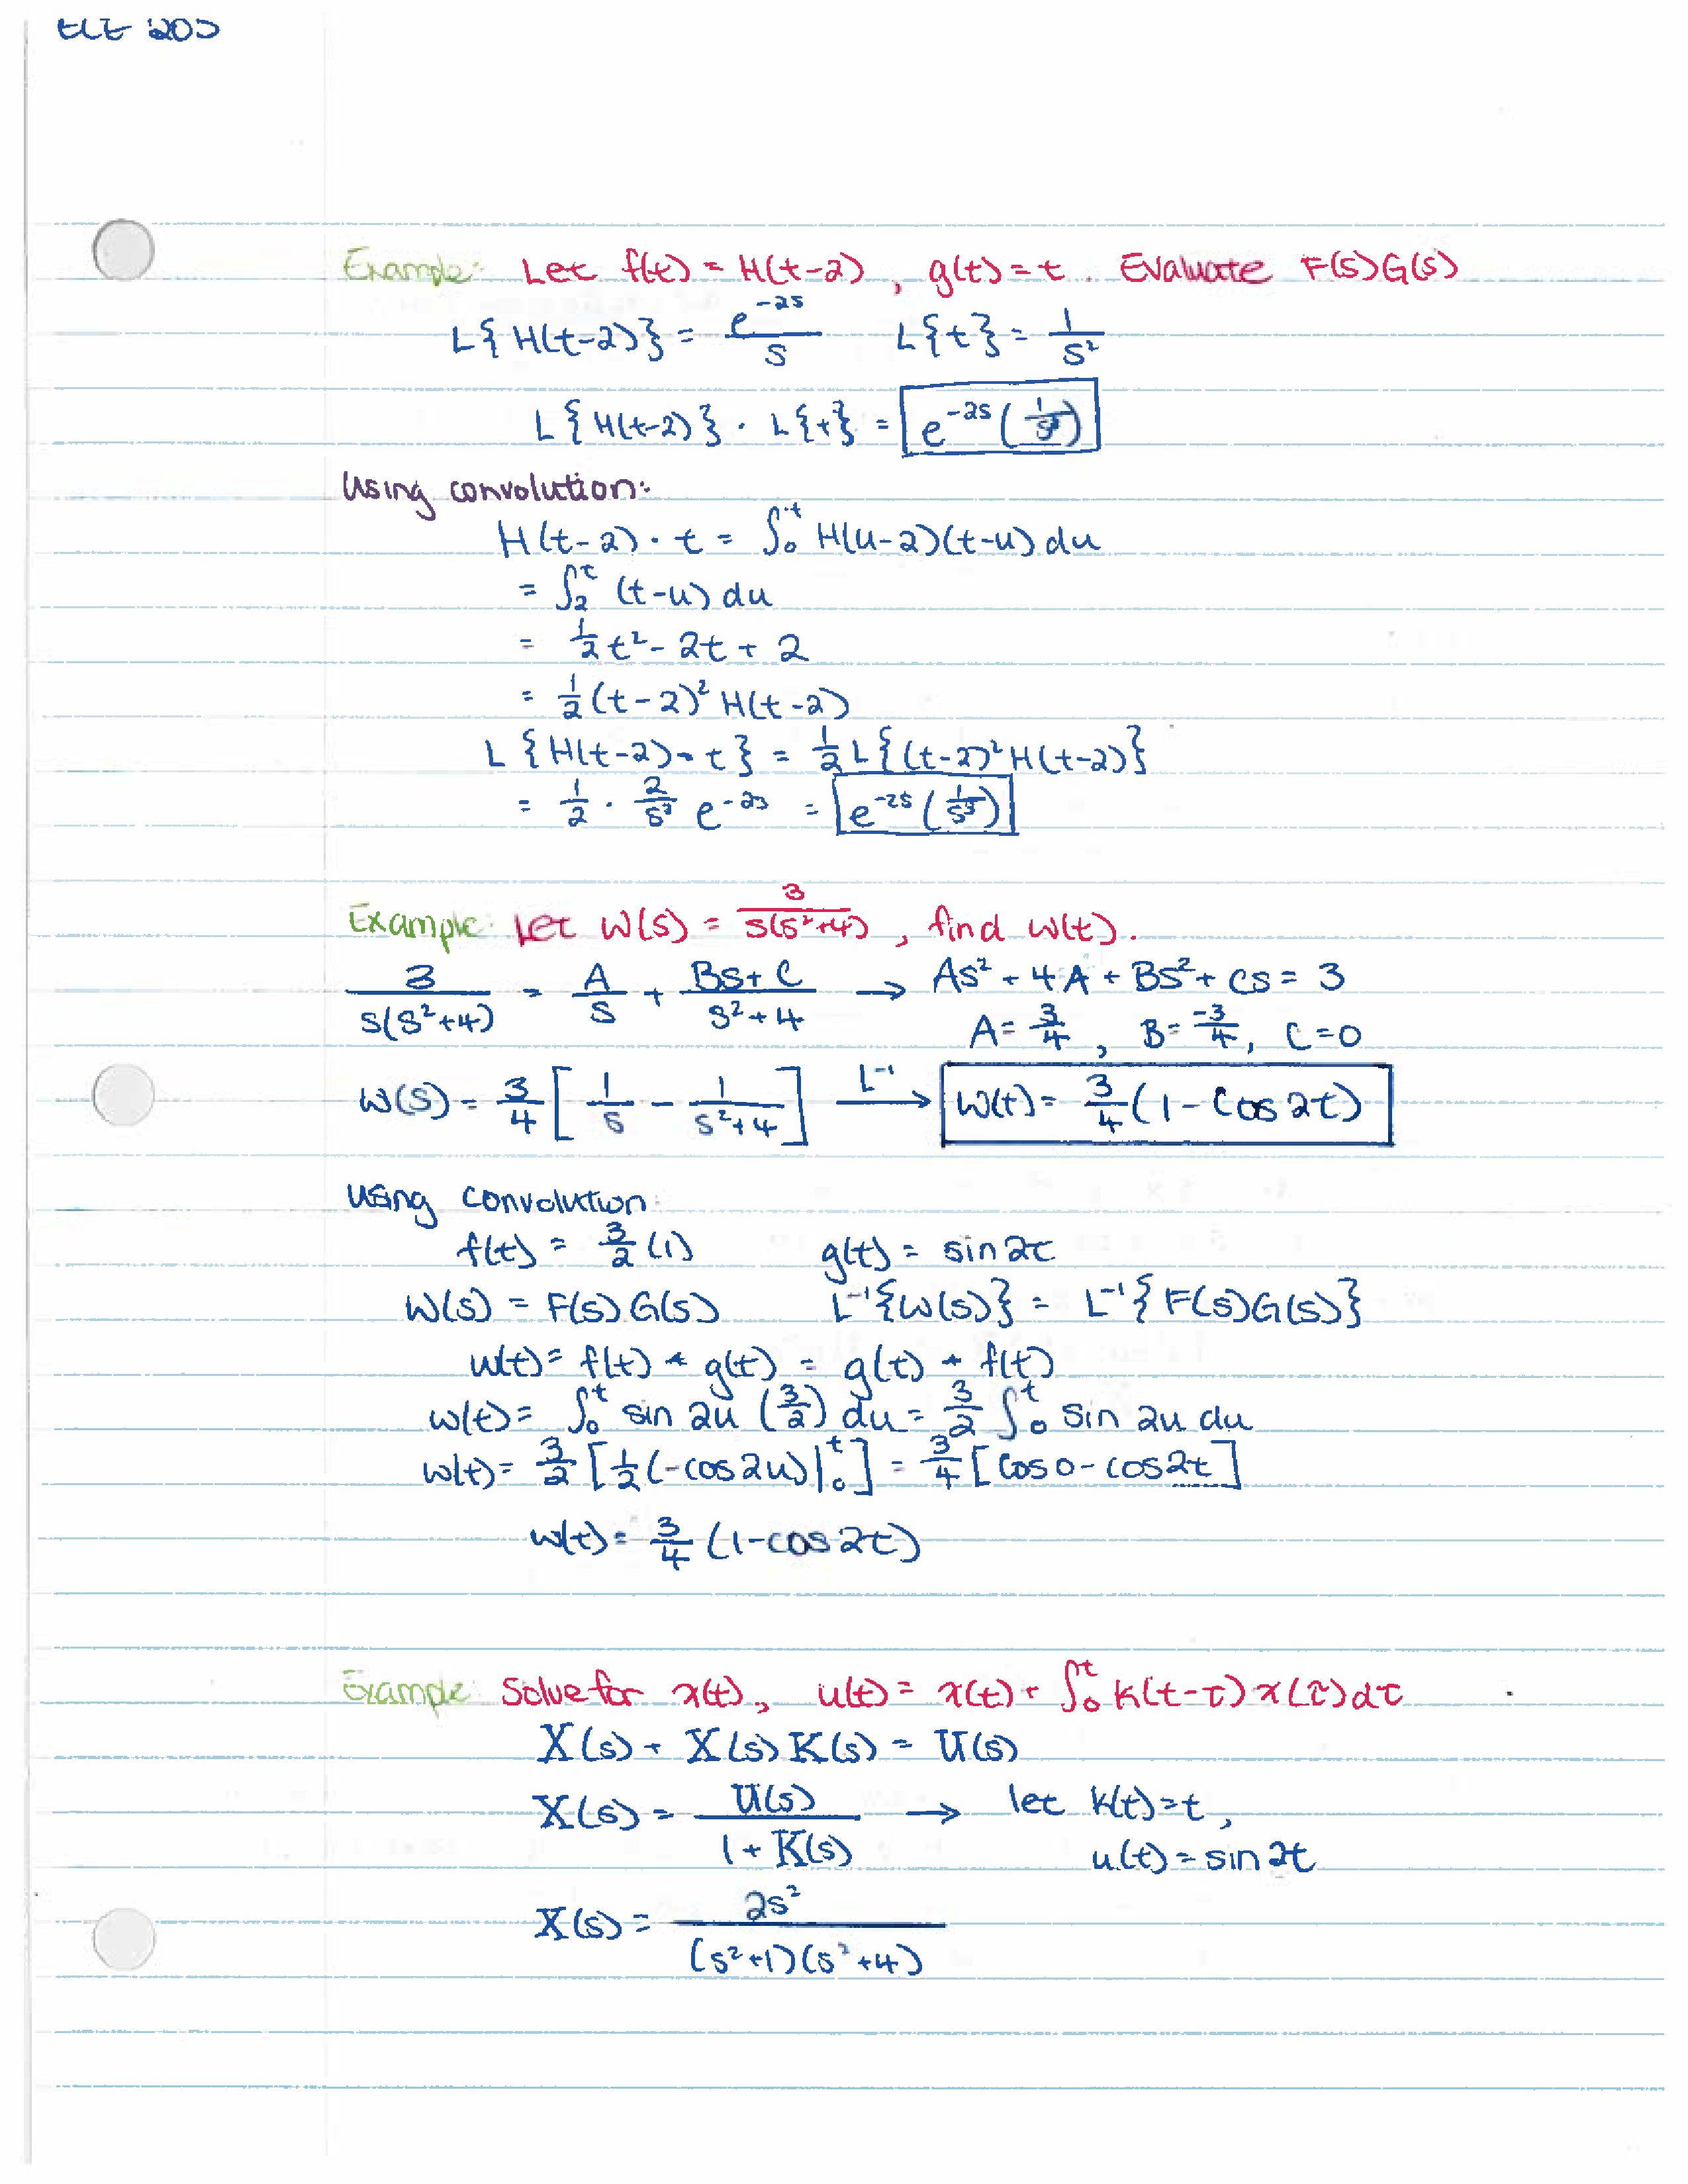 ELE 205
Example: Let f(t) = H(t-2), g(t) = t. Evaluate F(s)G(s)
L{H(t-2)} = e^-2s / s    L{t} = 1/s²
L{H(t-2)} · L{t} = e^-2s (1/s³)
Using convolution:
H(t-2) · t = ∫₀ᵗ H(u-2)(t-u) du
= ∫₂ᵗ (t-u) du
= ½t² - 2t + 2
= ½(t-2)² H(t-2)
L{H(t-2) · t} = ½ L{(t-2)² H(t-2)}
= ½ · 2/s³ e^-2s = e^-2s (1/s³)
Example: Let W(s) = 3/(s(s²+4)), find w(t).
3/(s(s²+4)) = A/s + (Bs+C)/(s²+4) → As² + 4A + Bs² + Cs = 3
A = 3/4, B = -3/4, C = 0
W(s) = 3/4 [1/s - 1/(s²+4)] —L⁻¹→ w(t) = 3/4 (1 - cos 2t)
using convolution:
f(t) = 3/2 (1)    g(t) = sin 2t
W(s) = F(s)G(s)    L⁻¹{W(s)} = L⁻¹{F(s)G(s)}
w(t) = f(t) * g(t) = g(t) * f(t)
w(t) = ∫₀ᵗ sin 2u (3/2) du = 3/2 ∫₀ᵗ sin 2u du
w(t) = 3/2 [½(-cos 2u)|₀ᵗ] = 3/4 [cos 0 - cos 2t]
w(t) = 3/4 (1 - cos 2t)
Example: Solve for x(t), u(t) = x(t) + ∫₀ᵗ k(t-τ) x(τ) dτ
X(s) + X(s)K(s) = U(s)
X(s) = U(s)/(1 + K(s)) → let k(t) = t,
u(t) = sin 2t
X(s) = 2s²/((s²+1)(s²+4))